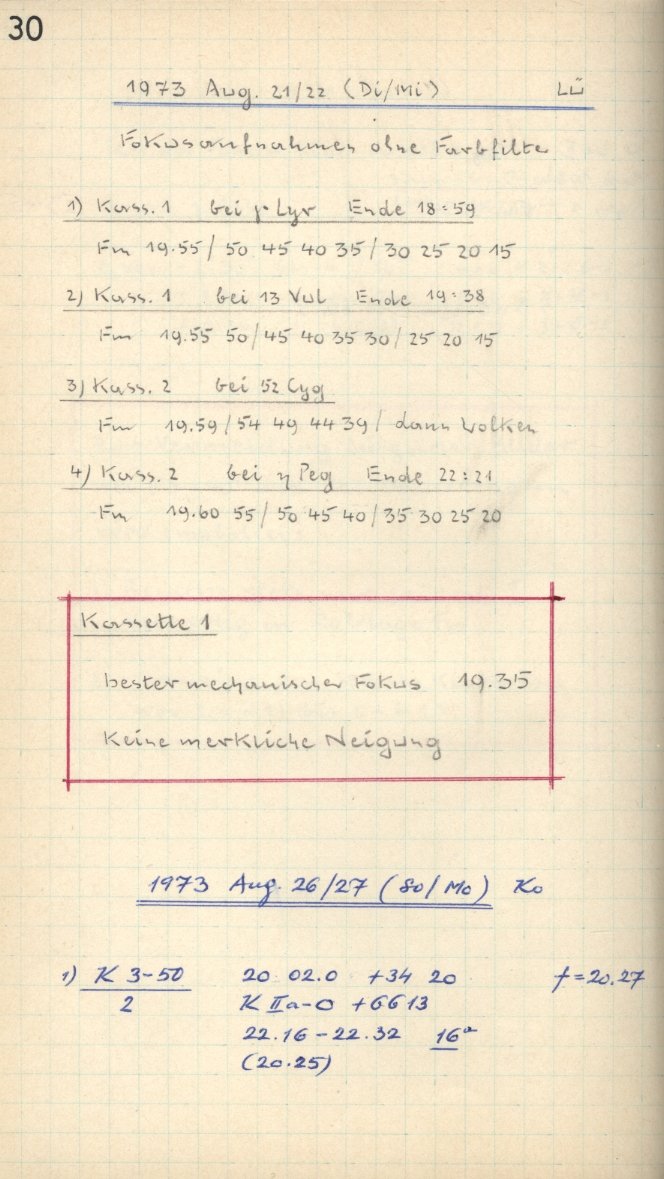 30
1973 Aug. 21/22 (Di/Mi) LÜ
Fokusaufnahmen ohne Farbfilter
1) Kass. 1 bei γ Lyr Ende 18:59
Fm 19.55 / 50 45 40 35 / 30 25 20 15
2) Kass. 1 bei 13 Vul Ende 19:38
Fm 19.55 50 / 45 40 35 30 / 25 20 15
3) Kass. 2 bei 52 Cyg
Fm 19.59 / 54 49 44 39 / dann Wolken
4) Kass. 2 bei η Peg Ende 22:21
Fm 19.60 55 / 50 45 40 / 35 30 25 20
Kassette 1
bester mechanischer Fokus 19.35
Keine merkliche Neigung
1973 Aug. 26/27 (So/Mo) Ko
1) K 3-50 20 02.0 +34 20 f=20.27
2 K IIa-O +GG13
22.16 - 22.32 16ᵐ
(20.25)